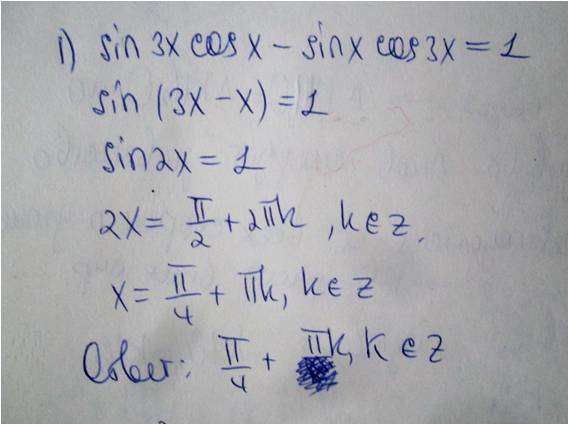 1) sin 3x cos x - sin x cos 3x = 1
sin (3x - x) = 1
sin 2x = 1
2x = π/2 + 2πk, k ∈ z.
x = π/4 + πk, k ∈ z
Ответ: π/4 + πk, k ∈ z